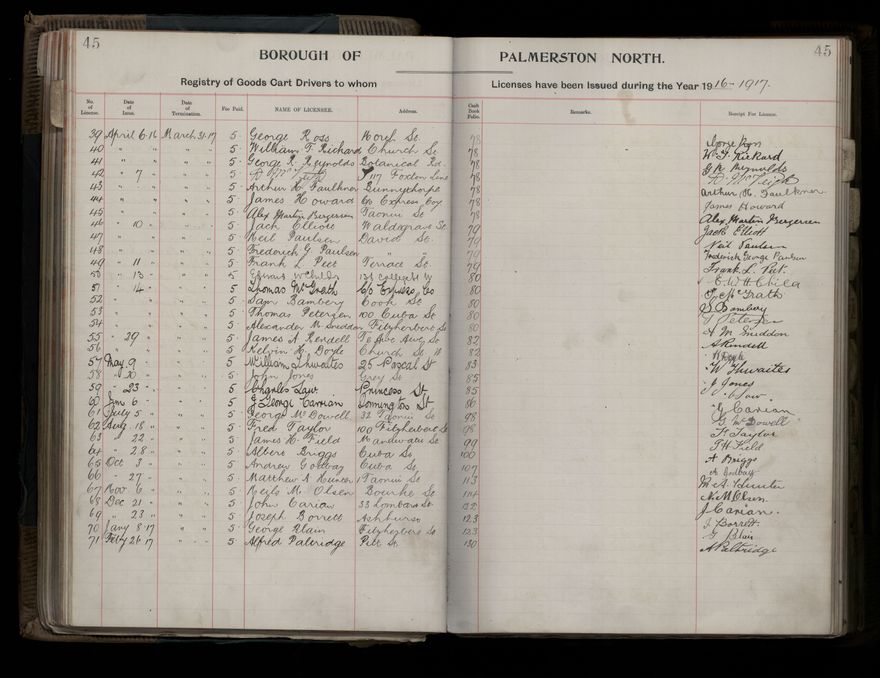 45 45
BOROUGH OF PALMERSTON NORTH.
Registry of Goods Cart Drivers to whom Licenses have been Issued during the Year 1916-1917.
No. of License. Date of Issue. Date of Termination. Fee Paid. NAME OF LICENSEE. Address. Cash Book Folio. Remarks. Receipt For License.
39 April 6.16 March 31.17 5 George Ross St. 78
40 " " " " 5 William F Rickard Church St. 78 W. F. Rickard
41 " " " " 5 George R. Reynolds Botanical Rd. 78 G R Reynolds
42 " 7 " " " 5 Foxton Line 78
43 " " " " 5 Arthur H. Faulkner Bunnythorpe 78 Arthur H. Faulkner
44 " " " " 5 James Howard c/o Express Coy 78 James Howard
45 " " " " 5 Alex Martin Bergersen Taonui St 78 Alex Martin Bergersen
46 " 10 " " " 5 Jack Elliott Waldegrave St. 79 Jack Elliott
47 " " " " 5 Neil Paulsen David St. 79 Neil Paulsen
48 " " " " 5 Frederick G Paulsen " " 79 Frederick George Paulsen
49 " 11 " " " 5 Frank L Peet Terrace St. 79 Frank L. Peet.
50 " 13 " " " 5 College St W 80 E W H Child
51 " 14 " " " 5 Thomas McGrath c/o Express Co 80 T. McGrath
52 " " " " 5 Sam Bambery Cook St. 80 S Bambery
53 " " " " 5 Thomas Petersen 100 Cuba St 80 T Petersen
54 " " " " 5 Alexander M Sneddon Fitzherbert St 80 A M Sneddon
55 " 29 " " " 5 James A Rendell Te Awe Awe St. 82 A Rendell
56 " " " " 5 Kelvin H. Doyle Church St W 82 Doyle
57 May 9 " " " 5 William Thwaites 25 Pascal St 83 W Thwaites
58 " 20 " " " 5 John Jones Grey St 85 J Jones
59 " 23 " " " 5 Charles Law Princess St 85 Law
60 Jun 6 " " " 5 J George Carrian St 86 G Carian
61 July 5 " " " 5 George McDowell 32 Taonui St 98 G McDowell
62 Aug 18 " " " 5 Fred Taylor 100 Fitzherbert St 98 F Taylor
63 " 22 " " " 5 James H. Field Manawaru St 99 J H Field
64 " 28 " " " 5 Albert Briggs Cuba St 100 A Briggs
65 Oct 3 " " " 5 Andrew Cuba St. 107
66 " 27 " " " 5 Matthew A Hunter Taonui St 113 M A Hunter
67 Nov 6 " " " 5 Neils M. Olsen Bourke St 114 N. M Olsen.
68 Dec 21 " " " 5 John Carian 33 Lombard St J Carian.
69 " 23 " " " 5 Joseph Borrett Ashhurst 123 J Borrett.
70 Jany 8.17 " " 5 George Blain Fitzherbert St 123 G Blain
71 Feby 26.17 " " 5 Alfred Paltridge Pitt St 130 A Paltridge